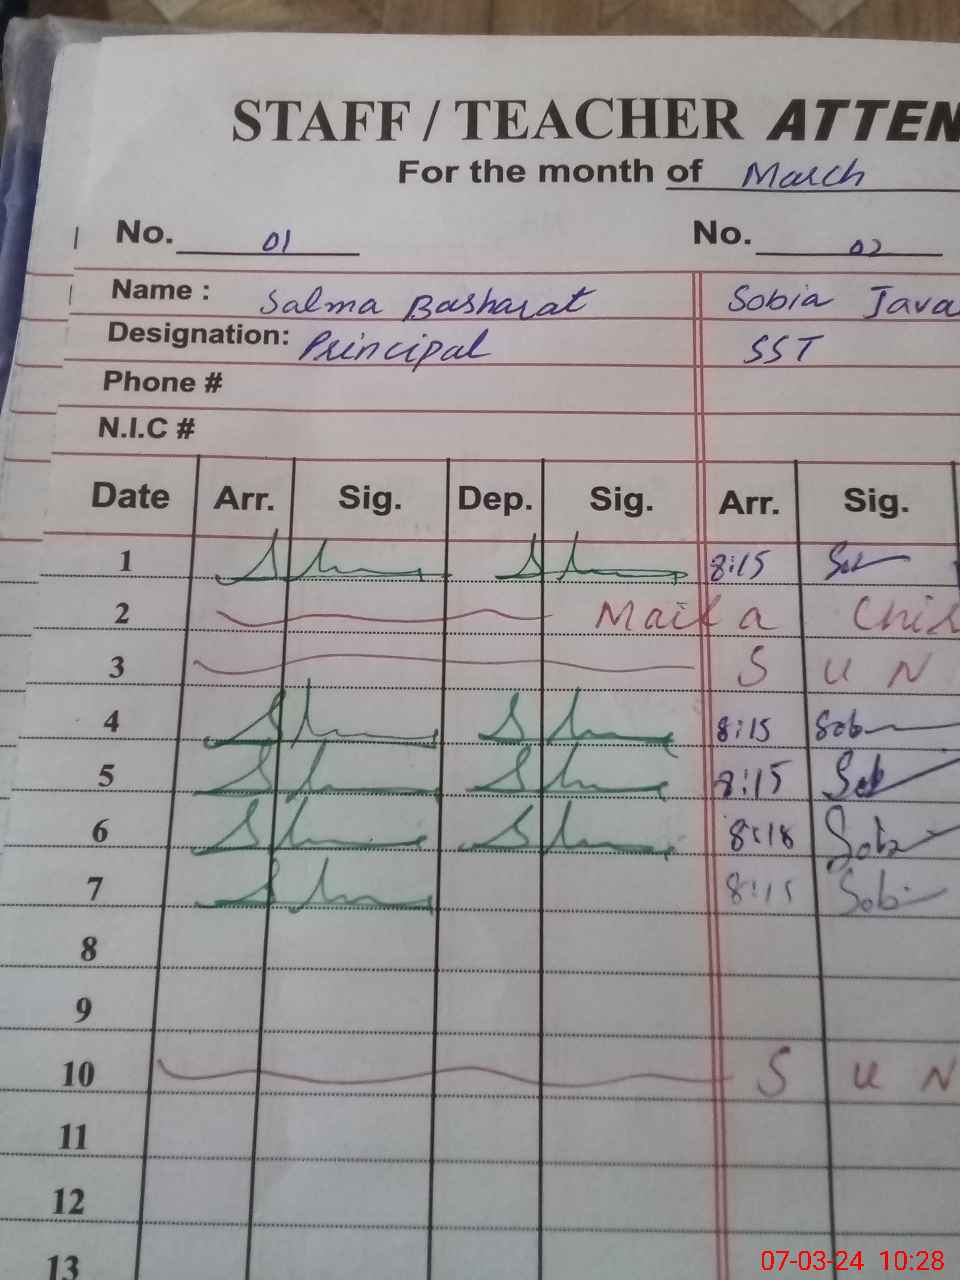 STAFF / TEACHER ATTEN
For the month of March
No. 01 No. 02
Name : Salma Basharat Sobia Java
Designation: Principal SST
Phone #
N.I.C #
Date Arr. Sig. Dep. Sig. Arr. Sig.
1 8:15
2
3 S U N
4 8:15 Sob
5 8:15 Sob
6 8:18 Sob
7 8:15 Sobi
8
9
10 S U N
11
12
13
07-03-24 10:28